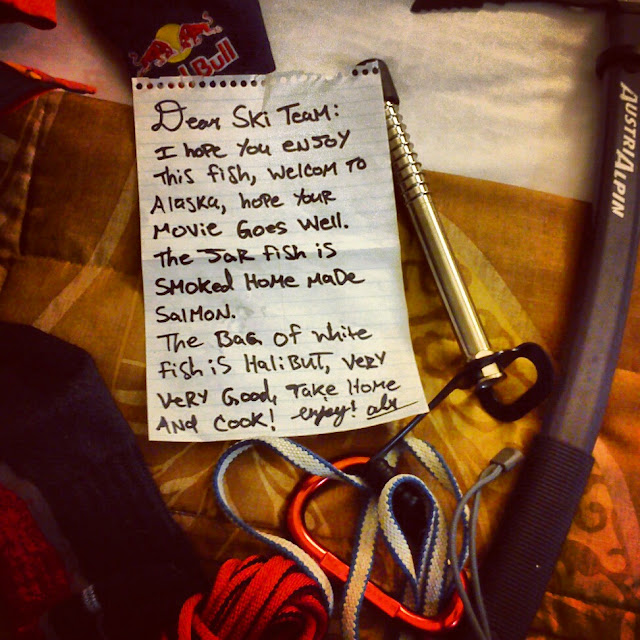 Red Bull
Dear Ski Team:
I hope You enjoy
this fish, Welcom to
Alaska, hope Your
Movie Goes Well.
The Jar fish is
Smoked Home made
Salmon.
The Bag of white
fish is Halibut, very
very Good, Take Home
And Cook! enjoy!
AUSTRIALPIN